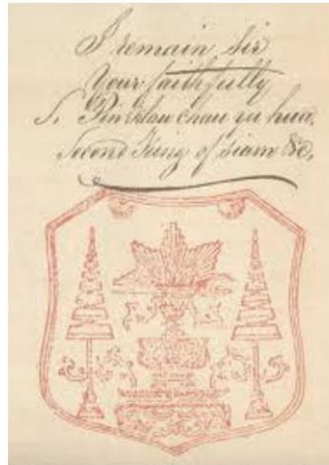 I remain Sir
Your faithfully
S. Pin Klau chau yu hua,
Second King of Siam &c,